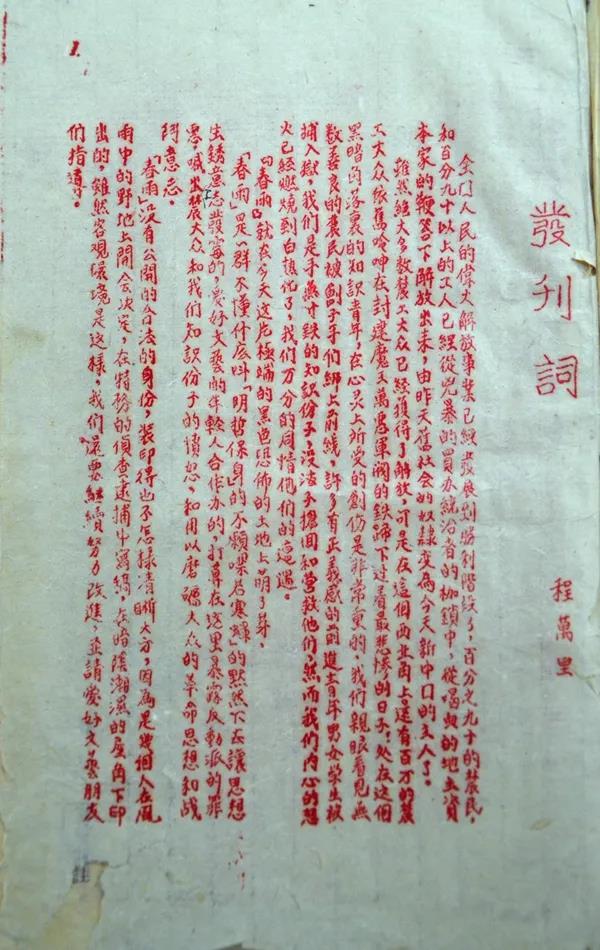 發刊詞
程萬里
全囗人民的偉大解放事業已經發展到勝利階段了，百分之九十的農民，
和百分九十以上的工人已經從兇暴的買办統治者的枷鎖中，從喝血的地主資
本家的鞭笞下解放出來，由昨天舊社会的奴隸变為今天新中囗的主人了。
雖然絕大多数農工大众已經獲得了解放，可是在這個西北角上還有百万的農
工大众依舊呻吟在封建魔王萬惡軍閥的鉄蹄下过着最悲惨的日子；处在這個
黑暗角落裏的知識青年，在心灵上所受的創伤是非常重的，我們親眼看見無
数善良的農民被劊子手们綁上前綫，許多有正義感的前進青年男女学生被
捕入獄，我們是手無寸鉄的知識份子，沒法子搶囬和营救他们，然而我們内心的怒
火已經燃燒到白熱化了，我們万分的同情他們的遭遇。
『春雨』就在今天这片極端的黑色恐怖的土地上萌了芽。
「春雨」是一群不懂什庅叫「明哲保身」的不願「噤若寒蟬」的默然下去讓思想
生銹意志發霉的，爱好文藝的年輕人合作办的，打算在这里暴露反動派的罪
惡，喊出農大众和我們知識份子的憤怒，和用以磨礪大众的革命思想和战
鬥意志。
「春雨」没有公開的合法的身份，装印得也不怎樣清晰大方，因為是幾個人在風
雨中的野地上開会决定，在特務的偵查逮捕中寫稿，在暗陰潮濕的屋角下印
出的，雖然客观環境是这樣，我們還要継續努力改進，並請愛好文藝朋友
们指導。
1.